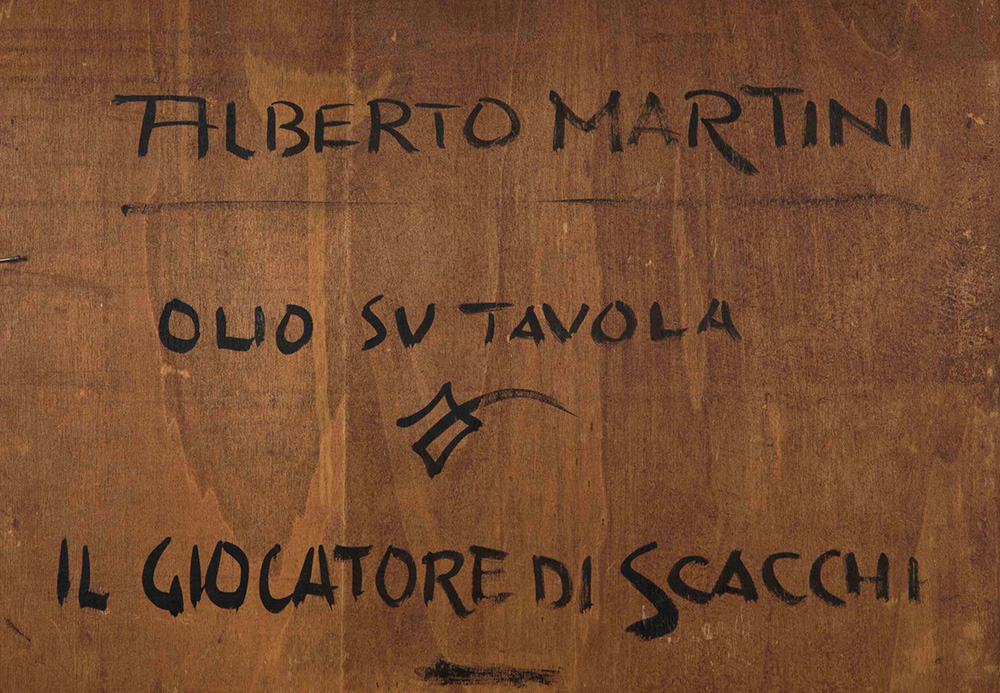 ALBERTO MARTINI
OLIO SU TAVOLA
IL GIOCATORE DI SCACCHI